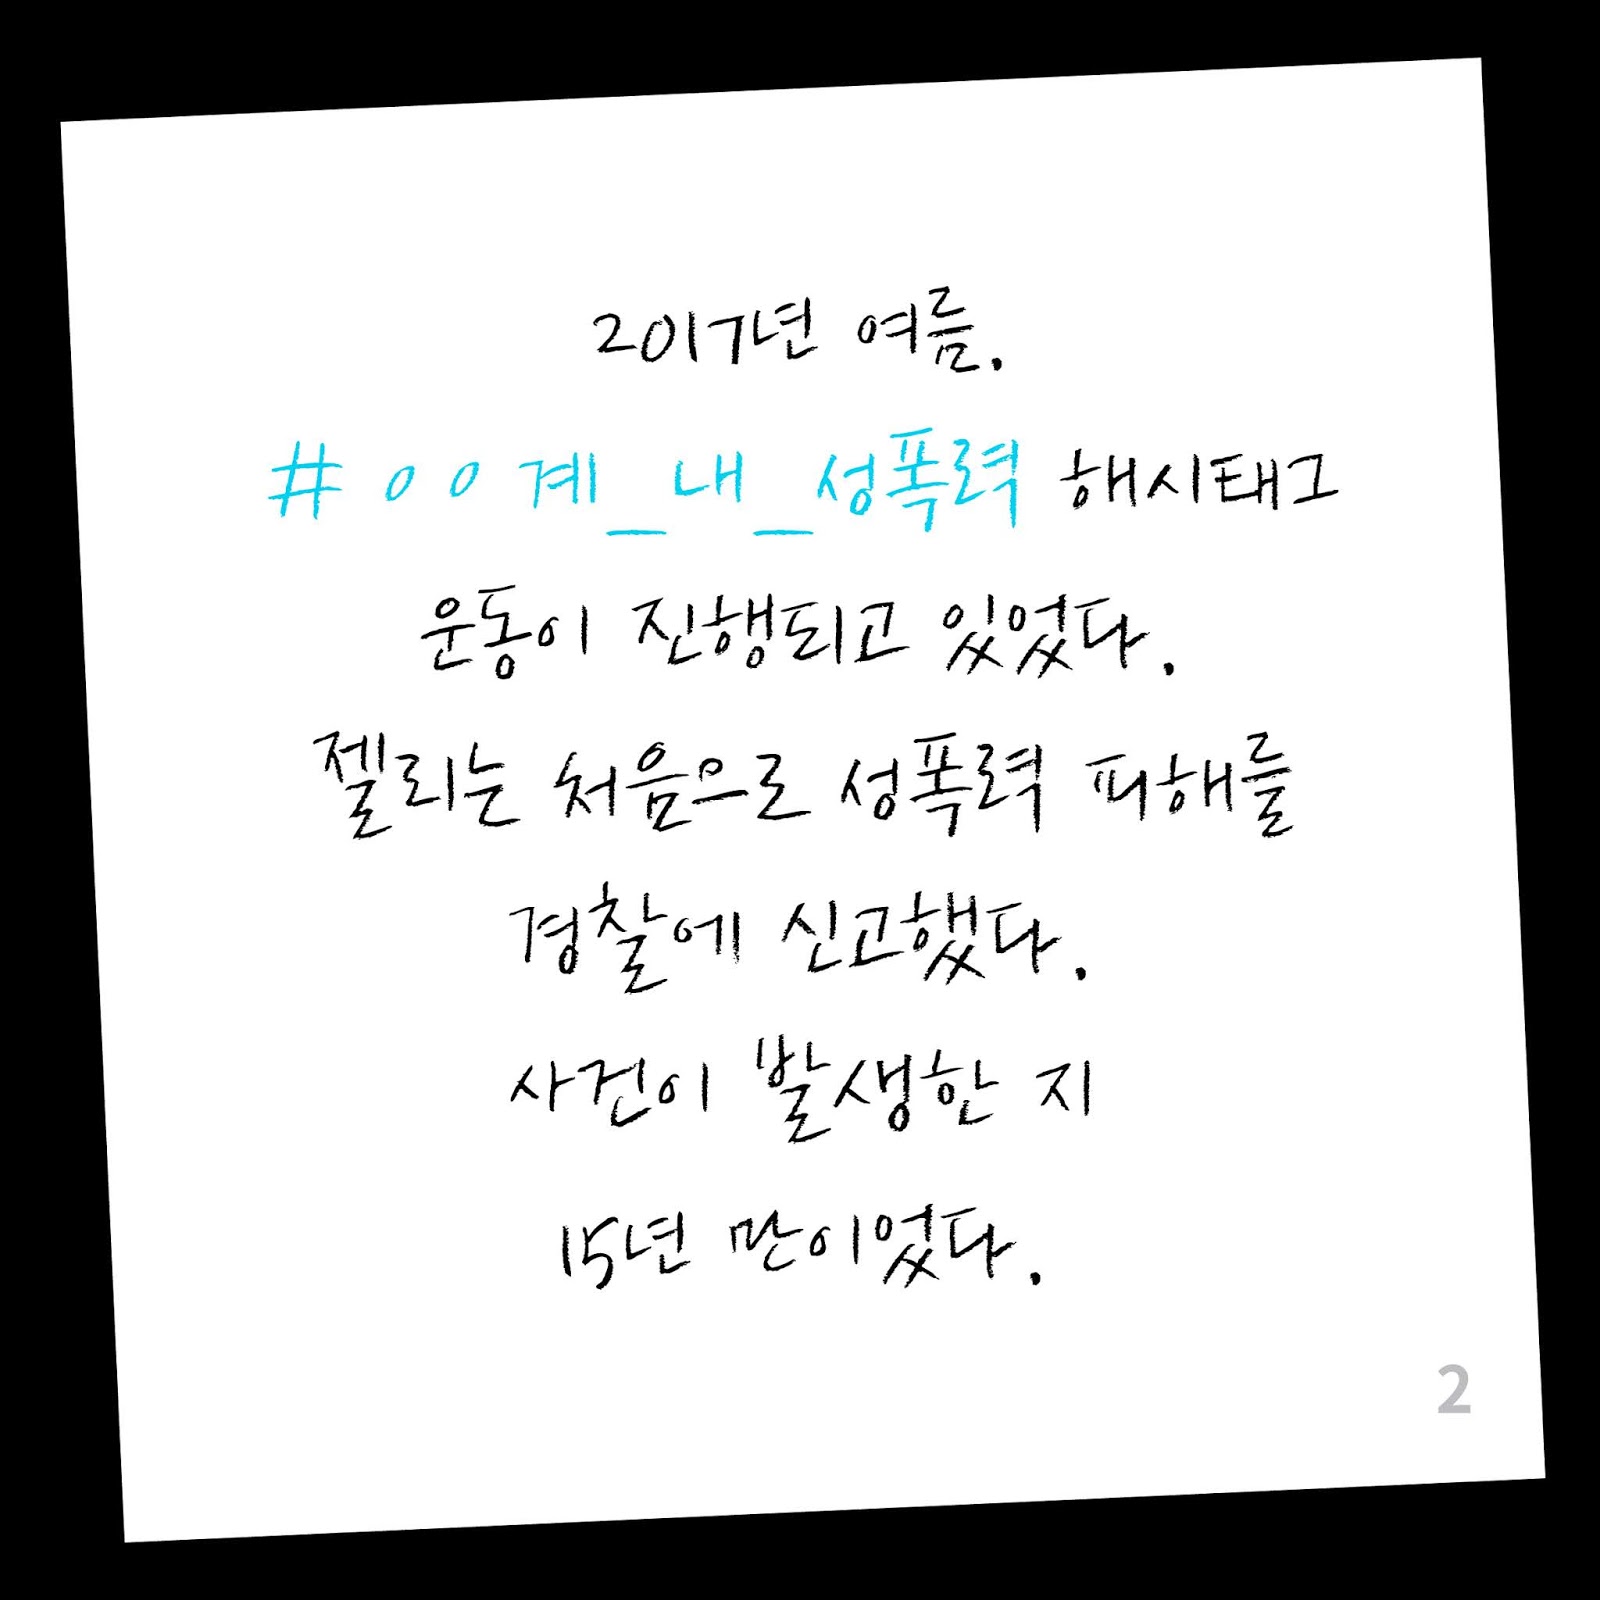 2017년 여름.
#ㅇㅇ계_내_성폭력 해시태그
운동이 진행되고 있었다.
젤리는 처음으로 성폭력 피해를
경찰에 신고했다.
사건이 발생한 지
15년 만이었다.
2